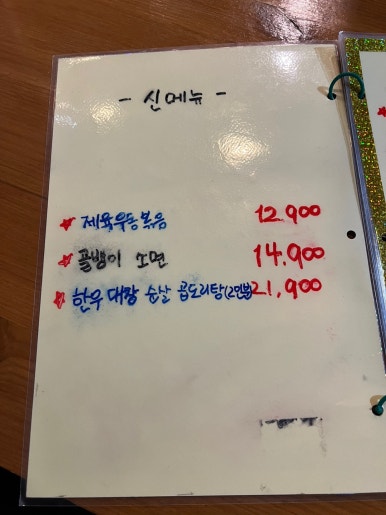 - 신메뉴 -
☆ 제육우동볶음 12.900
☆ 골뱅이 소면 14.900
☆ 한우 대창 순살 곱도리탕(2인분) 21,900